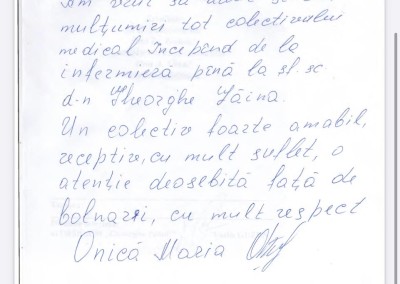 mulțumiri tot colectivului
medical începînd de la
infermieră pînă la șf. sc.
d-n Gheorghe Găina.
Un colectiv foarte amabil,
receptiv, cu mult suflet, o
atenție deosebită față de
bolnavi, cu mult respect
Onică Maria